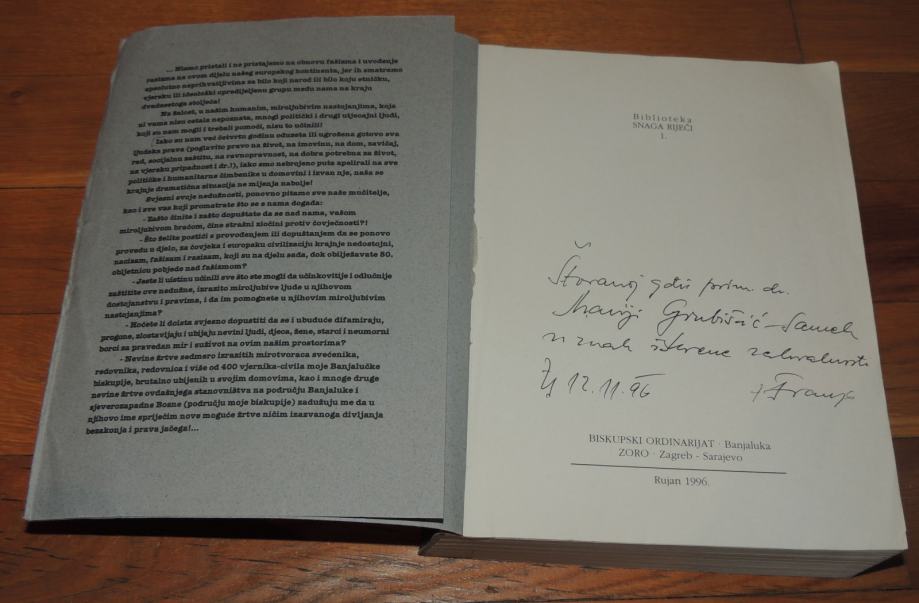 ... Nismo pristali i ne pristajemo na obnovu fašizma i uvođenje
rasizma na ovom dijelu našeg europskog kontinenta, jer ih smatramo
apsolutno neprihvatljivima za bilo koji narod ili bilo koju etničku,
vjersku ili ideološki opredijeljenu grupu među nama na kraju
dvadesetoga stoljeća!
Na žalost, u našim humanim, miroljubivim nastojanjima, koja
ni vama nisu ostala nepoznata, mnogi politički i drugi utjecajni ljudi,
koji su nam mogli i trebali pomoći, nisu to učinili!
Iako su nam već četvrtu godinu oduzeta ili ugrožena gotovo sva
ljudska prava (poglavito pravo na život, na imovinu, na dom, zavičaj,
rad, socijalnu zaštitu, na ravnopravnost, na dobra potrebna za život,
na vjersku pripadnost i dr.!), iako smo nebrojeno puta apelirali na sve
političke i humanitarne čimbenike u domovini i izvan nje, naša se
krajnje dramatična situacija ne mijenja nabolje!
Svjesni svoje nedužnosti, ponovno pitamo sve naše mučitelje,
kao i sve vas koji promatrate što se s nama događa:
- Zašto činite i zašto dopuštate da se nad nama, vašom
miroljubivom braćom, čine strašni zločini protiv čovječnosti?!
- Što želite postići s provođenjem ili dopuštanjem da se ponovo
provedu u djelo, za čovjeka i europsku civilizaciju krajnje nedostojni,
nacizam, fašizam i rasizam, koji su na djelu sada, dok obilježavate 50.
obljetnicu pobjede nad fašizmom?
- Jeste li uistinu učinili sve što ste mogli da učinkovitije i odlučnije
zaštitite ove nedužne, izrazito miroljubive ljude u njihovom
dostojanstvu i pravima, i da im pomognete u njihovim miroljubivim
nastojanjima?
- Hoćete li doista svjesno dopustiti da se i ubuduće difamiraju,
progone, zlostavljaju i ubijaju nevini ljudi, djeca, žene, starci i neumorni
borci za pravedan mir i suživot na ovim našim prostorima?
- Nevine žrtve sedmero izrazitih mirotvoraca svećenika,
redovnika, redovnica i više od 400 vjernika-civila moje Banjalučke
biskupije, brutalno ubijenih u svojim domovima, kao i mnoge druge
nevine žrtve ovdašnjeg stanovništva na području Banjaluke i
sjeverozapadne Bosne (području moje biskupije) zadužuju me da u
njihovo ime spriječim nove moguće žrtve ničim izazvanoga divljanja
bezakonja i prava jačega!...
Biblioteka
SNAGA RIJEČI
1.
Štovanoj gđi prim. dr.
Mariji Grubišić-Samek
u znak iskrene zahvalnosti
Zg 12.11.96 + Franjo
BISKUPSKI ORDINARIJAT · Banjaluka
ZORO · Zagreb - Sarajevo
Rujan 1996.